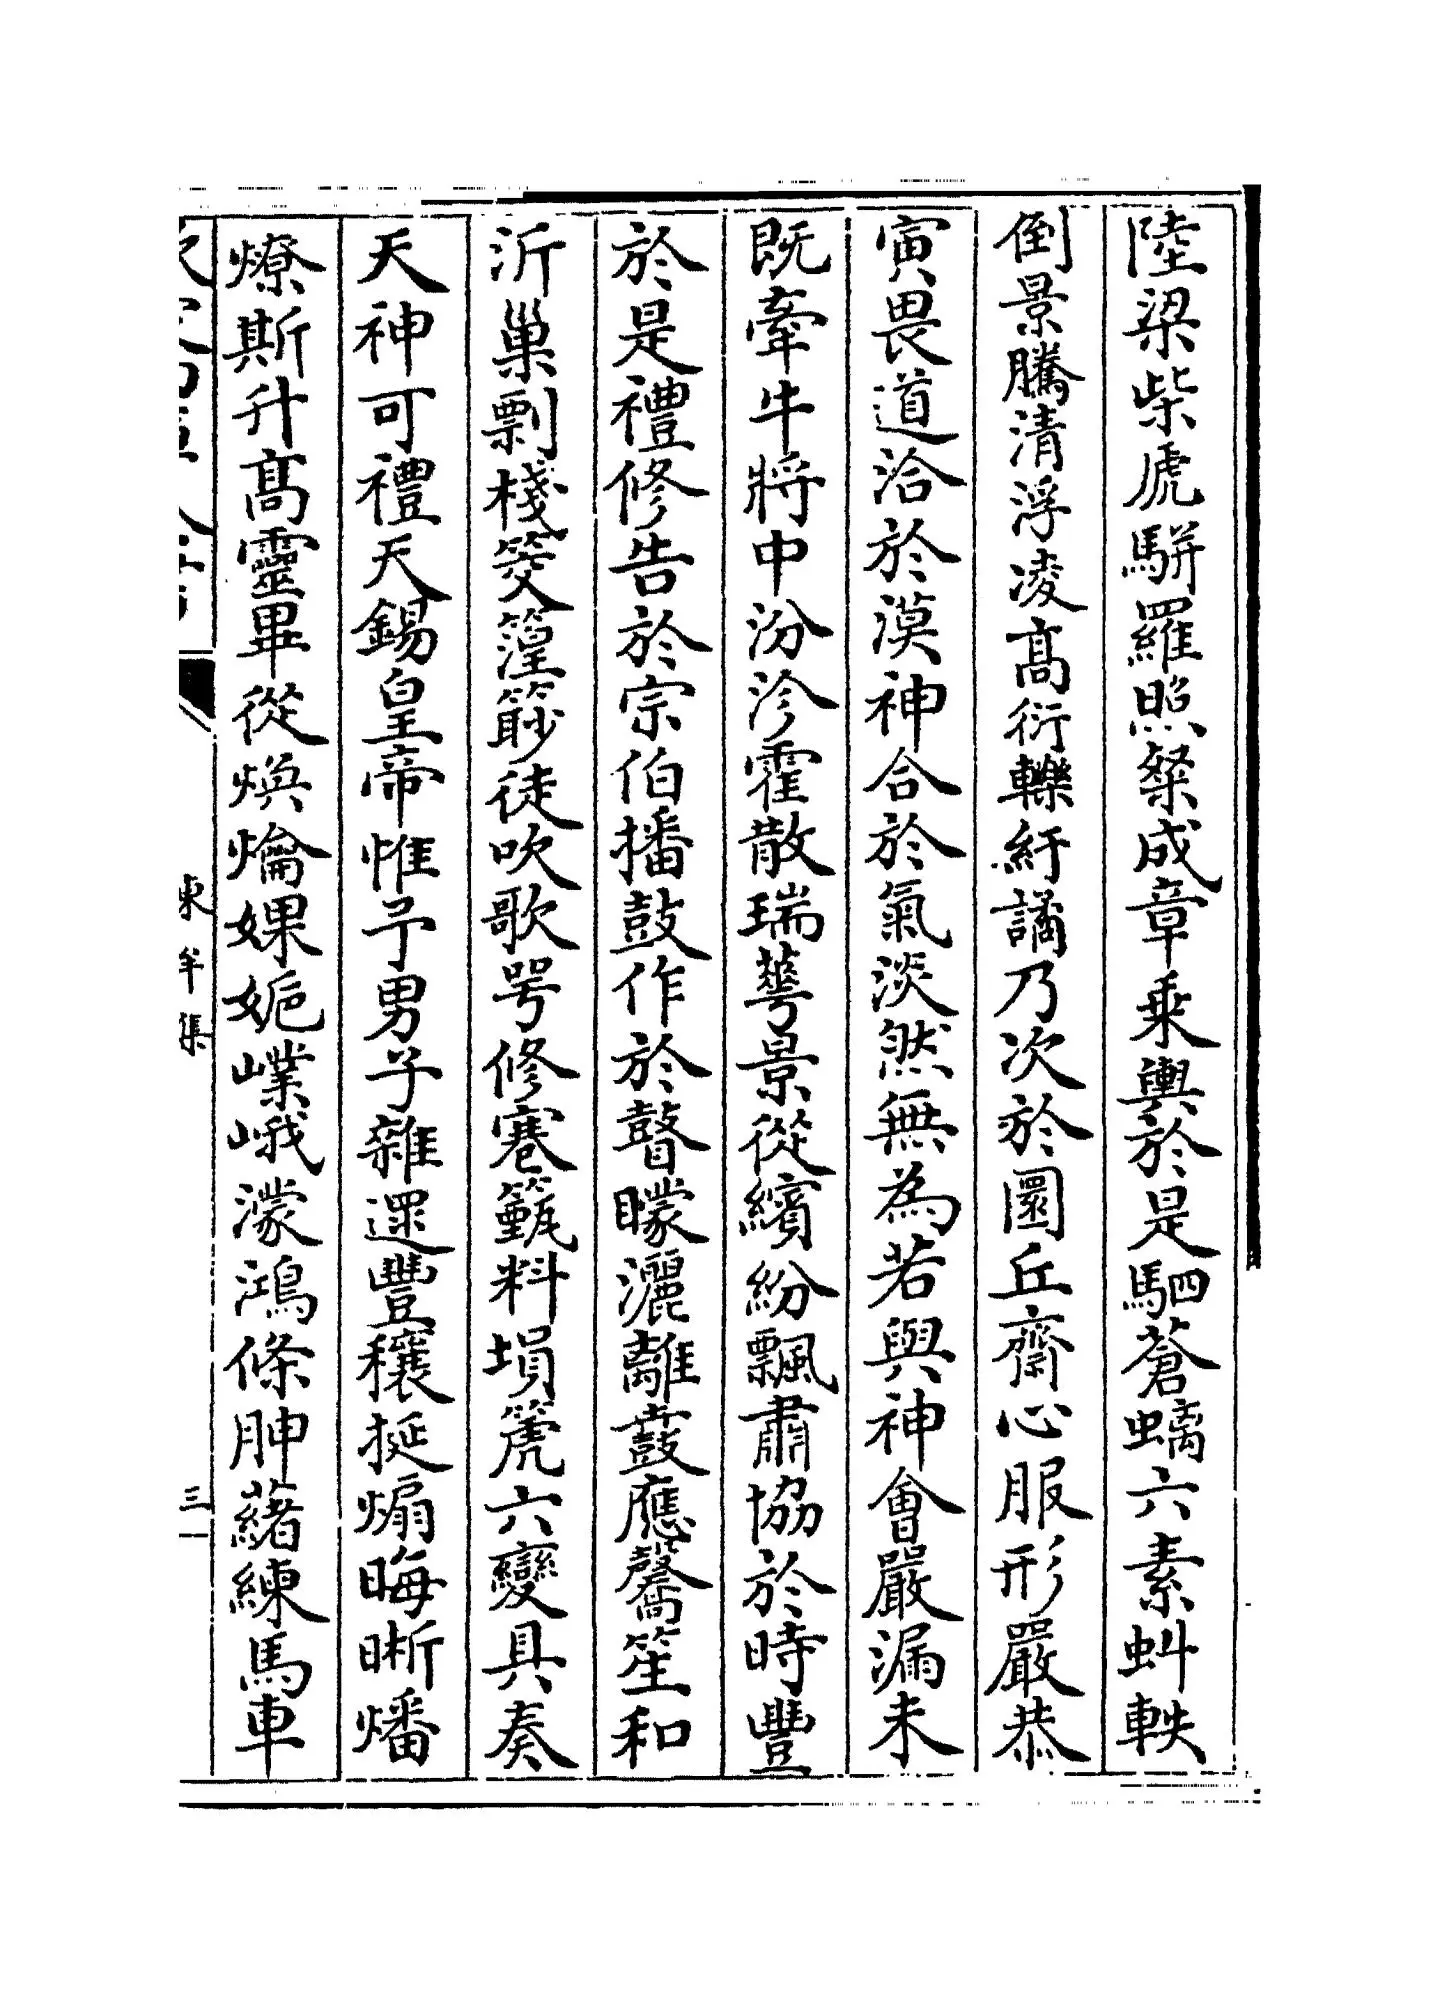 陸梁柴虒駢羅照粲成章乘輿於是駟蒼螭六素虯軼
倒景騰清浮凌髙衍轢紆譎乃次於圜丘齋心服形嚴恭
寅畏道洽於漠神合於氣淡然無為若與神會嚴漏未
既牽牛將中汾沴霍散瑞蕚景從繽紛飄肅協於時豐
於是禮修告於宗伯播鼓作於瞽矇灑離鼖應馨笙和
沂巢剽棧筊篞篎徒吹歌咢修蹇甀料塤篪六變具奏
天神可禮天錫皇帝惟予男子雜遝豐穰挻煽晦晣燔
燎斯升髙靈畢從煥爚婐妮嶫峨濛鴻條胂赭練馬車
東牟集
三